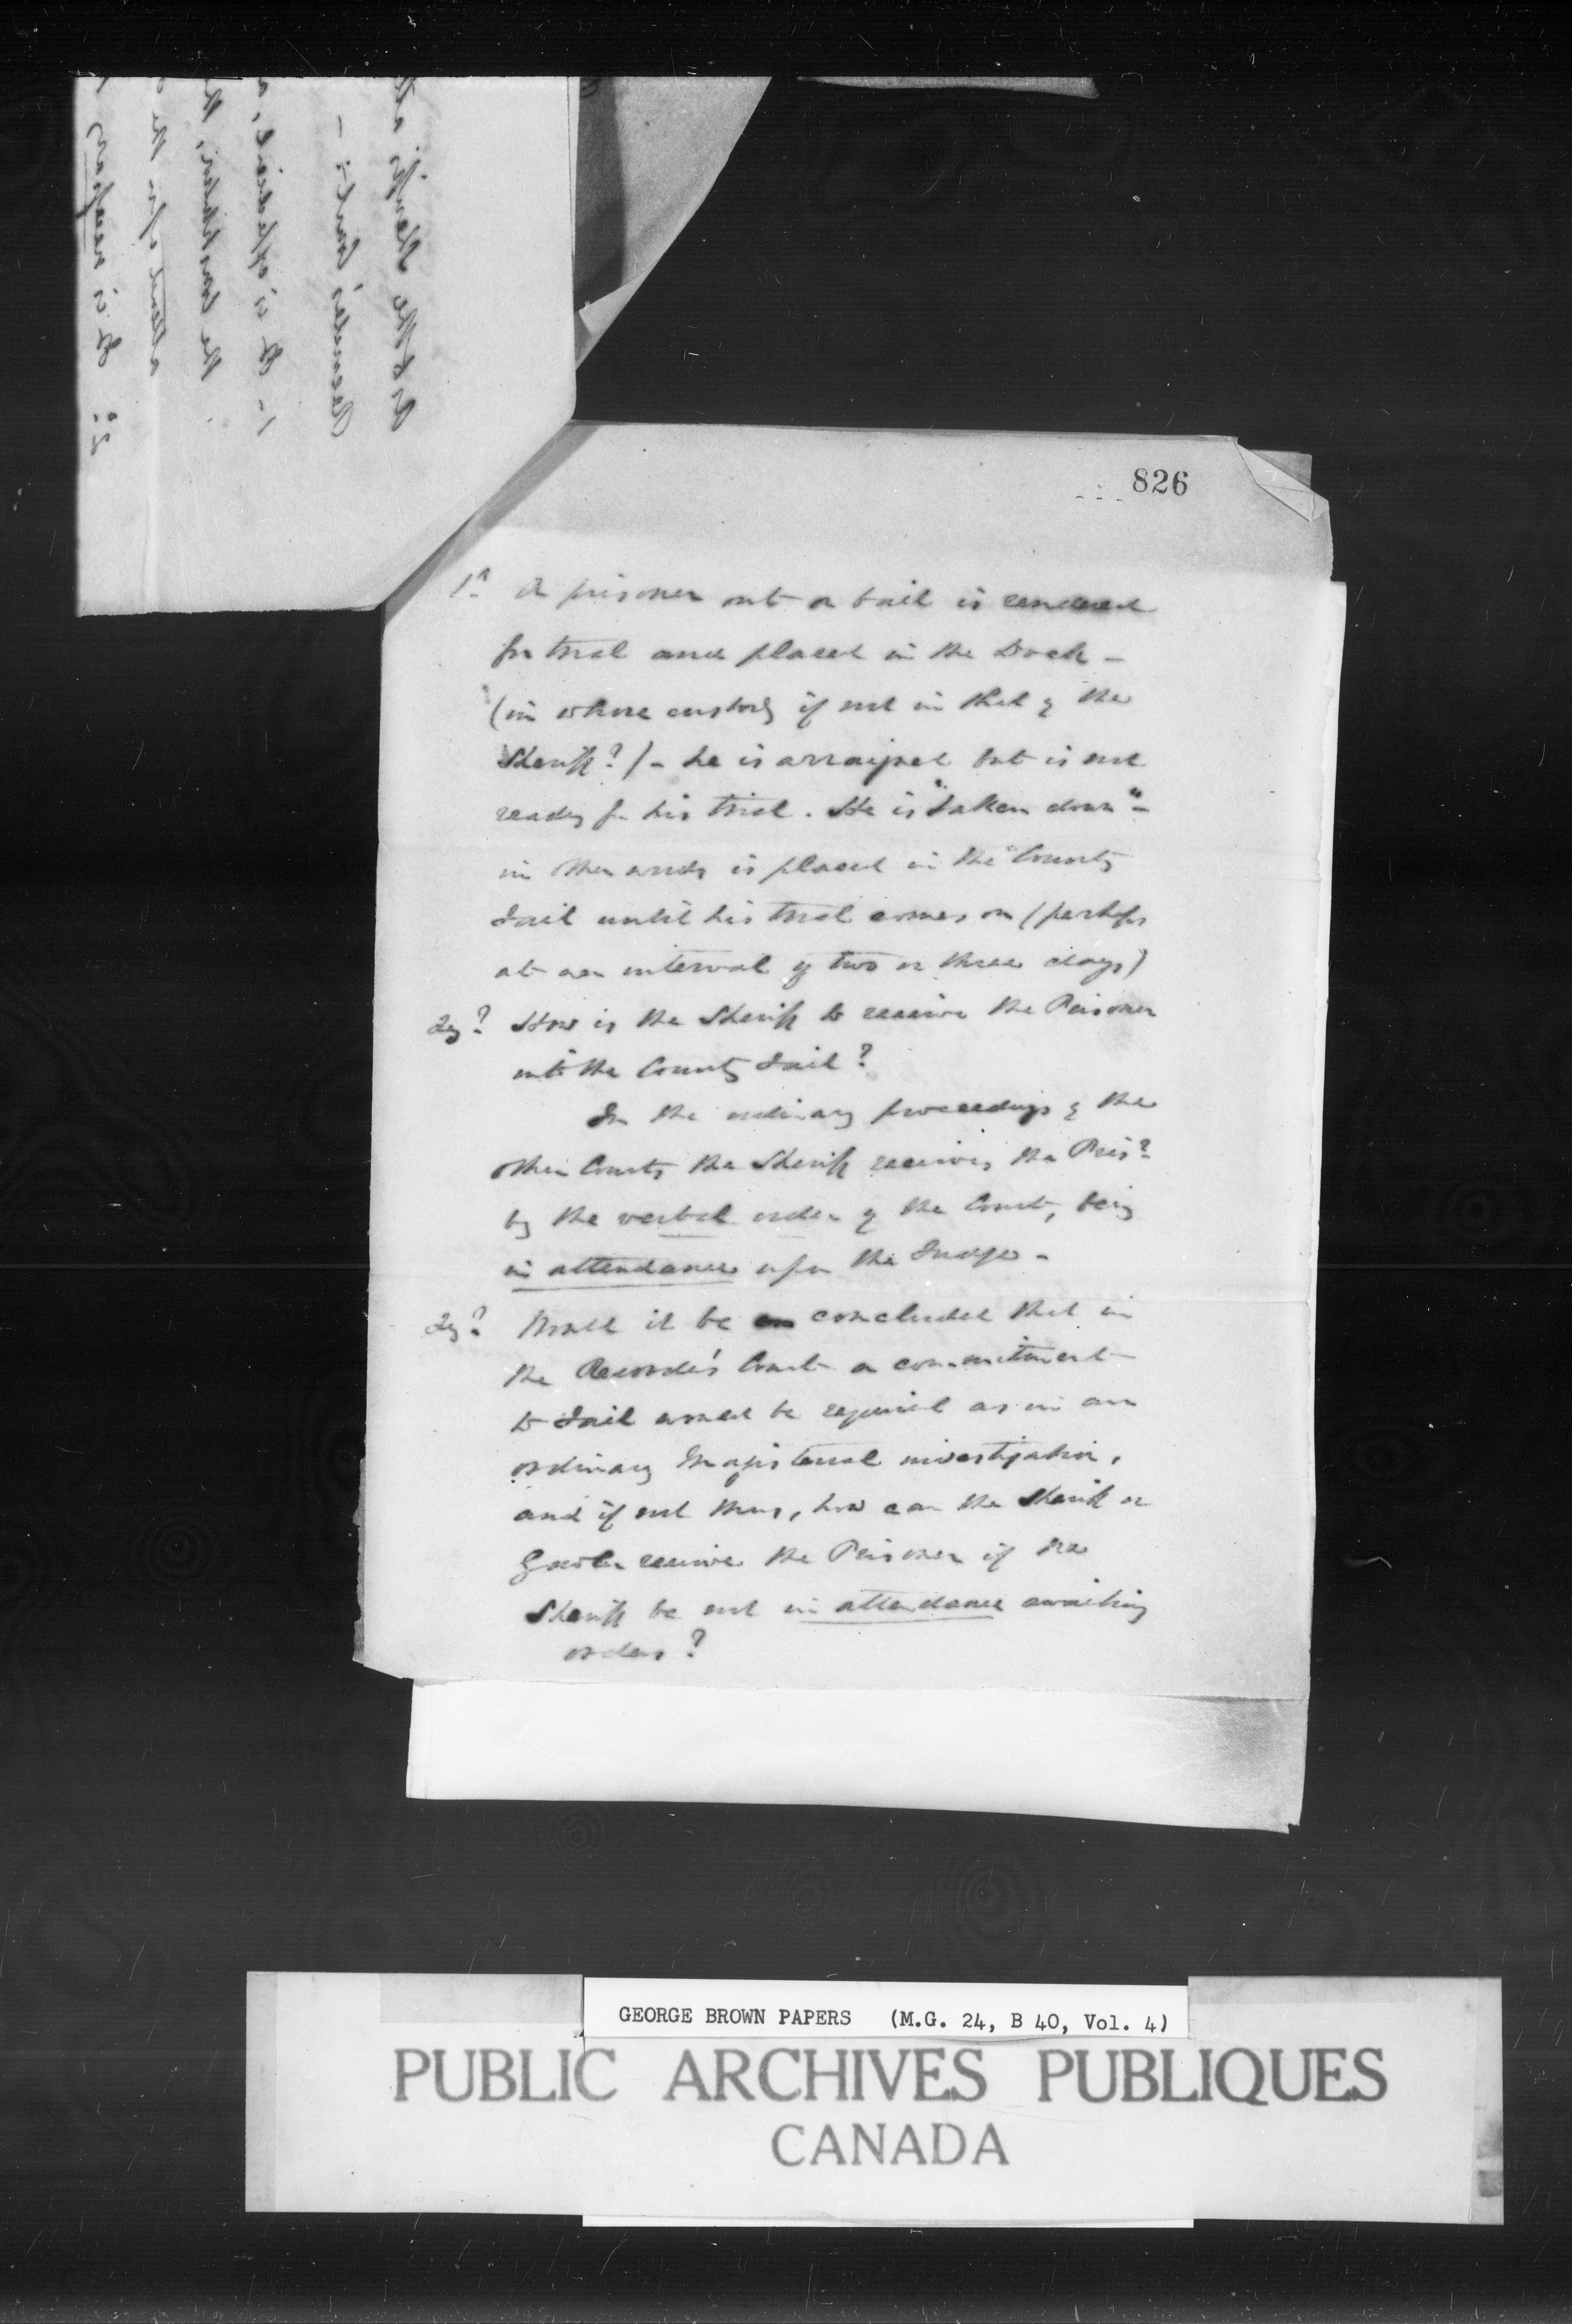 826
1st A prisoner out on bail is rendered
for trial and placed in the Dock -
(in whose custody if not in that of the
Sheriff?) - he is arraigned but is not
ready for his trial. He is "taken down" -
in other words is placed in the County
Jail until his trial comes on (perhaps
at an interval of two or three days)
Qy? How is the Sheriff to receive the Prisoner
into the County Jail?
In the ordinary proceedings of the
other Courts the Sheriff receives the Prisr
by the verbal order of the Court, being
in attendance upon the Judge -
Qy? Would it be concluded that in
the Recorder's Court a commitment
to Jail would be required as in an
ordinary Magisterial investigation,
and if not thus, how can the Sheriff or
Gaoler receive the Prisoner if the
Sheriff be not in attendance awaiting
orders?
GEORGE BROWN PAPERS (M.G. 24, B 40, Vol. 4)
PUBLIC ARCHIVES PUBLIQUES
CANADA